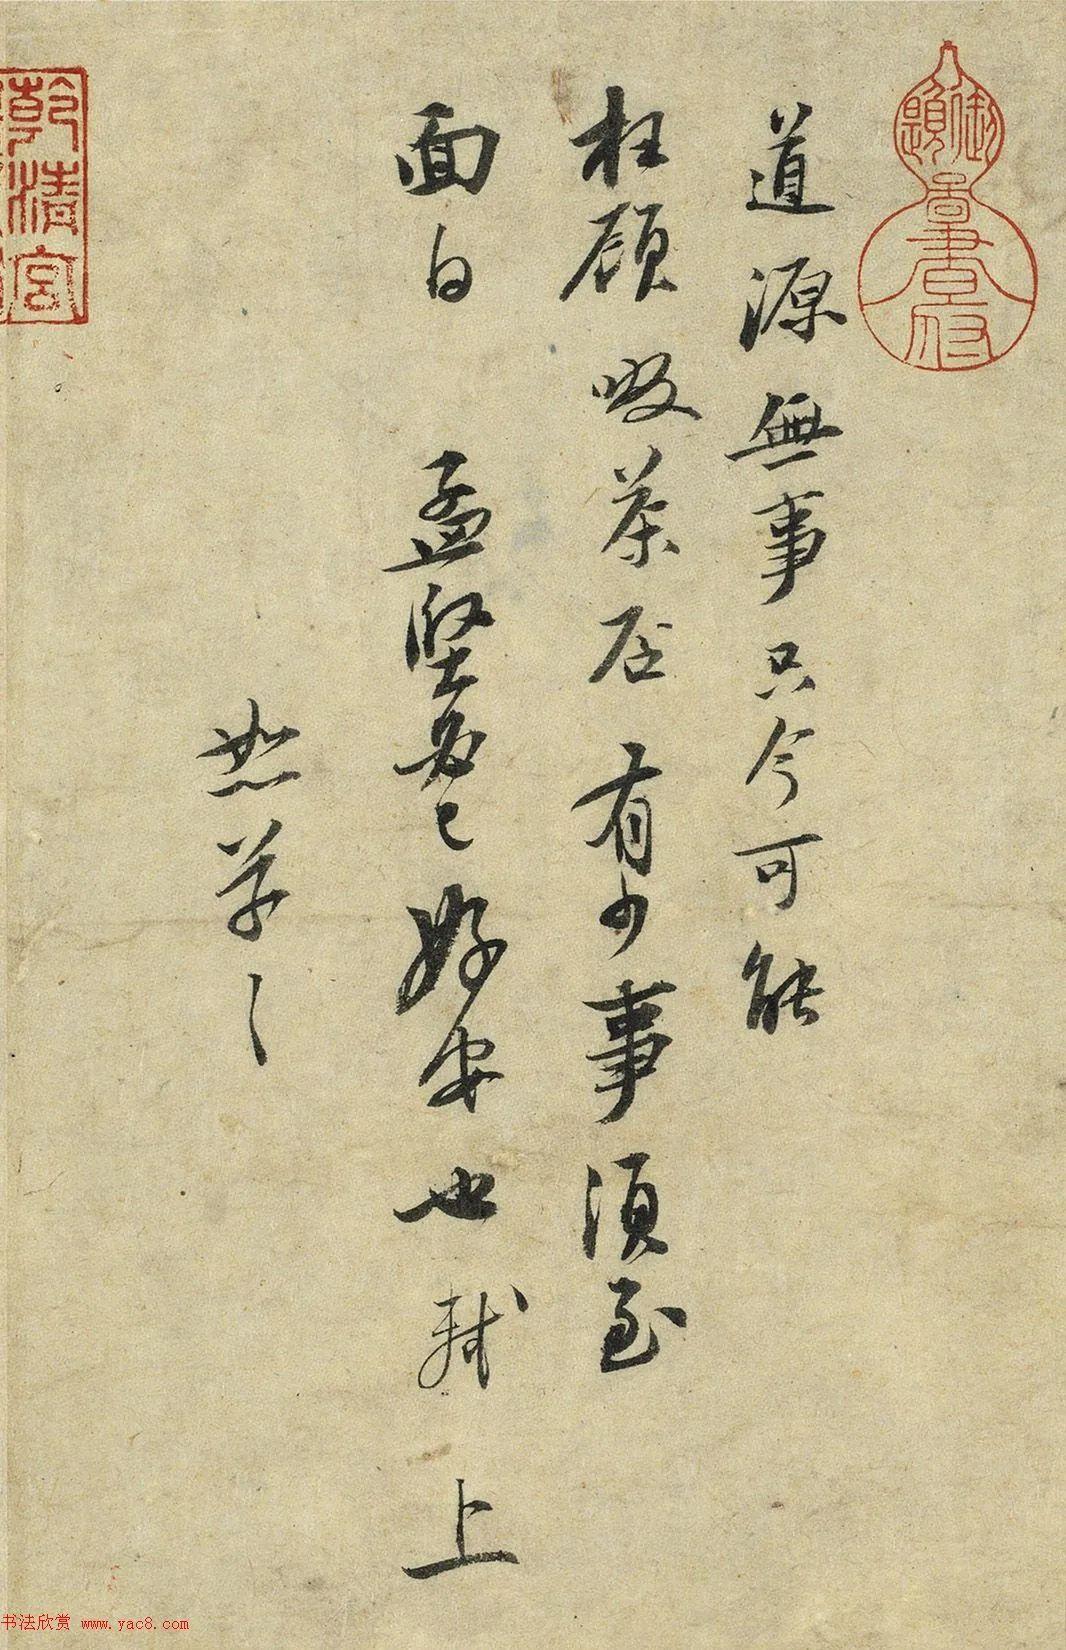 道源無事只今可能
枉顧啜茶否有少事須至
面白孟堅必已好安也軾上
恕草々
乾清宮
书法欣赏 www.yac8.com